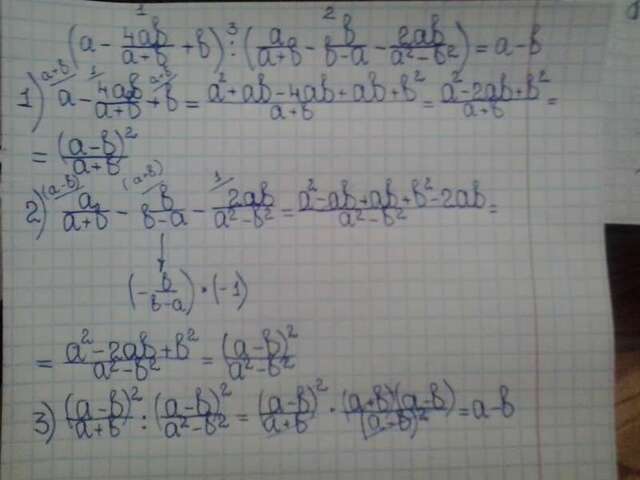 1 3 2
(a - 4ab/(a+b) + b) : (a/(a+b) - b/(b-a) - 2ab/(a²-b²)) = a-b
(a+b) 1 (a+b)
1) a - 4ab/(a+b) + b = (a²+ab-4ab+ab+b²)/(a+b) = (a²-2ab+b²)/(a+b) =
= (a-b)²/(a+b)
(a-b) (a+b) 1
2) a/(a+b) - b/(b-a) - 2ab/(a²-b²) = (a²-ab+ab+b²-2ab)/(a²-b²) =
(-b/(b-a)) · (-1)
= (a²-2ab+b²)/(a²-b²) = (a-b)²/(a²-b²)
3) (a-b)²/(a+b) : (a-b)²/(a²-b²) = (a-b)²/(a+b) · (a+b)(a-b)/(a-b)² = a-b